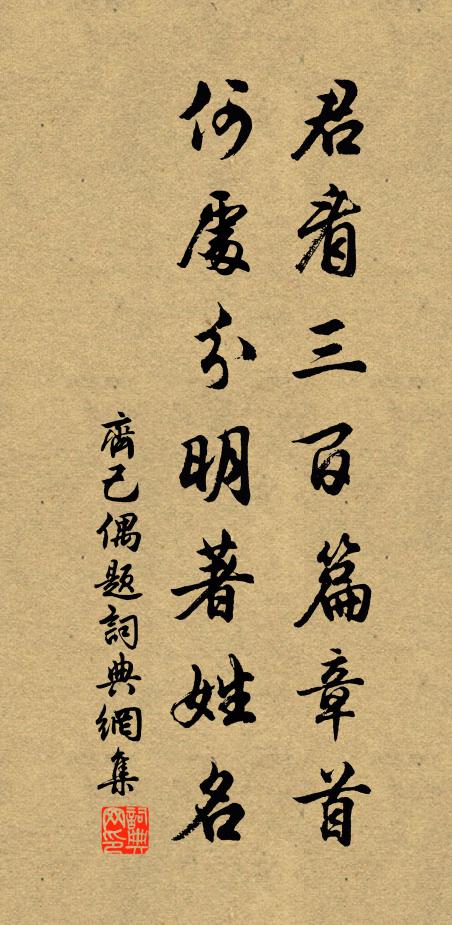 君看三百篇章首
何處分明著姓名
齊己偶題詞典網集
詞典网印